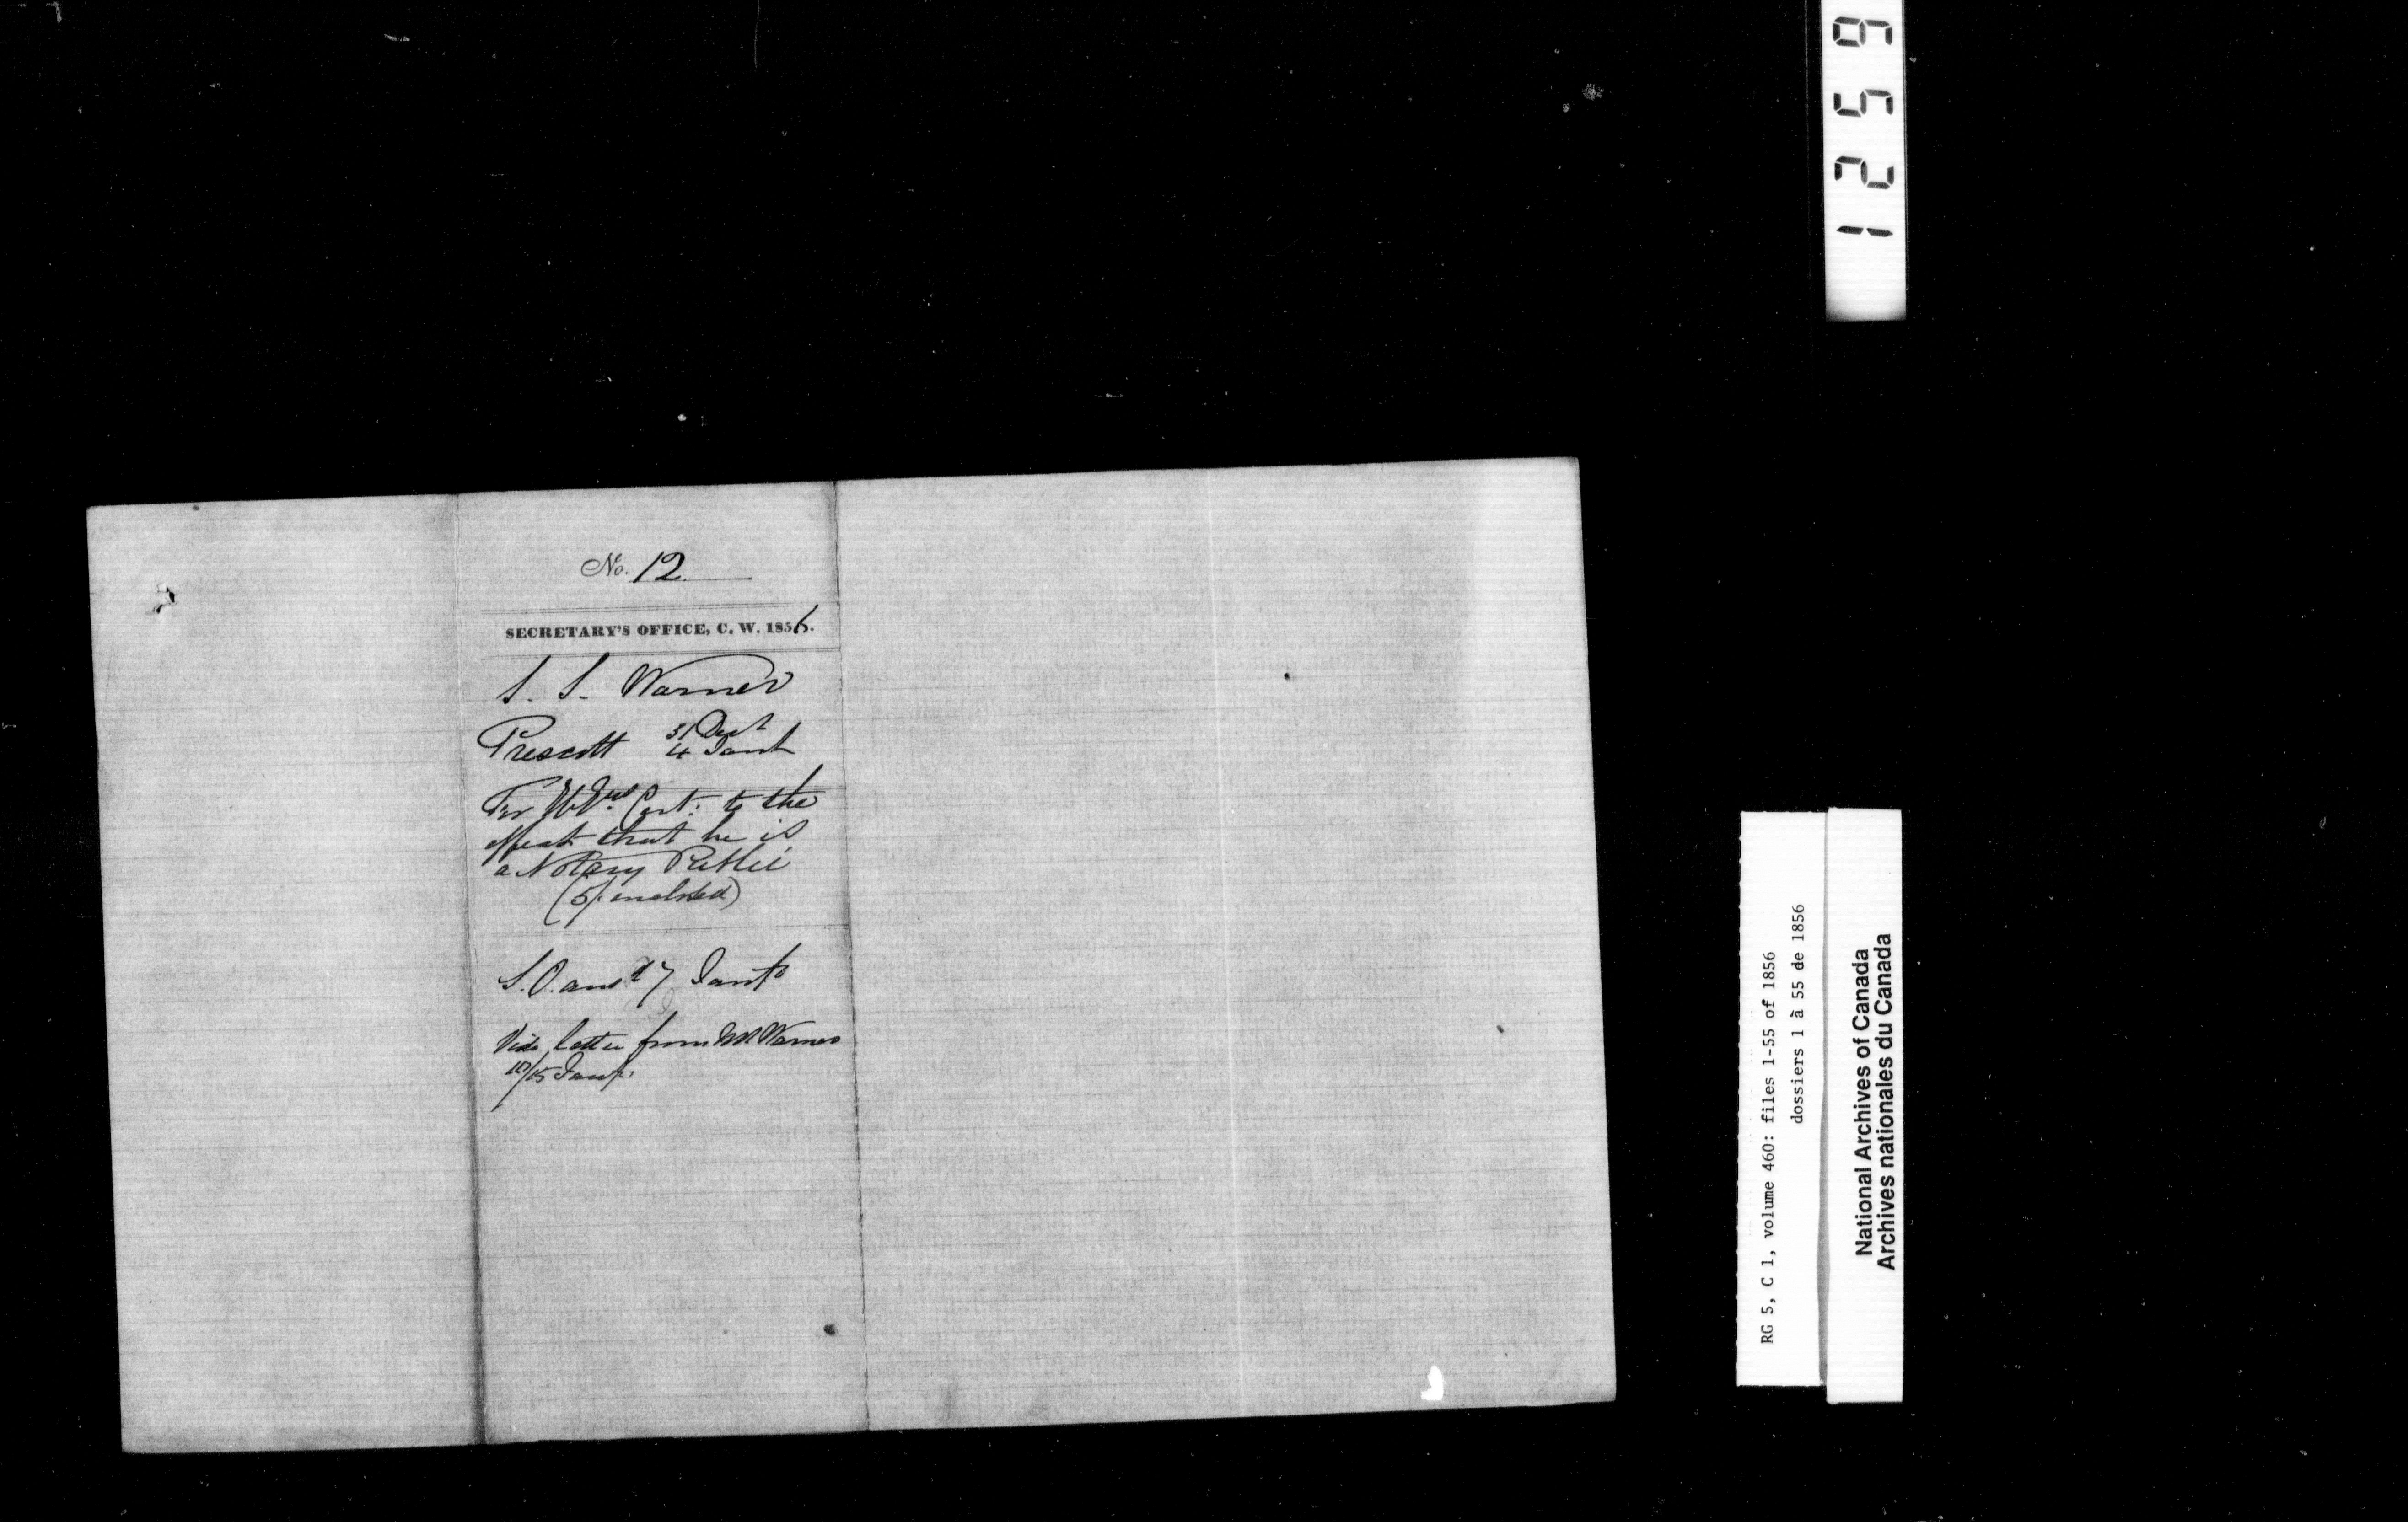 1259
No. 12
SECRETARY'S OFFICE, C. W. 1856.
S. S. Warner
Prescott 31 Decr
4 Jany
For Cert: to the
effect that he is
a Notary Public
(5/. enclosed)
S.O. ansd 7 Jany
Vide letter from Mr Warner
10/15 Jany.
RG 5, C 1, volume 460: files 1-55 of 1856
dossiers 1 à 55 de 1856
National Archives of Canada
Archives nationales du Canada